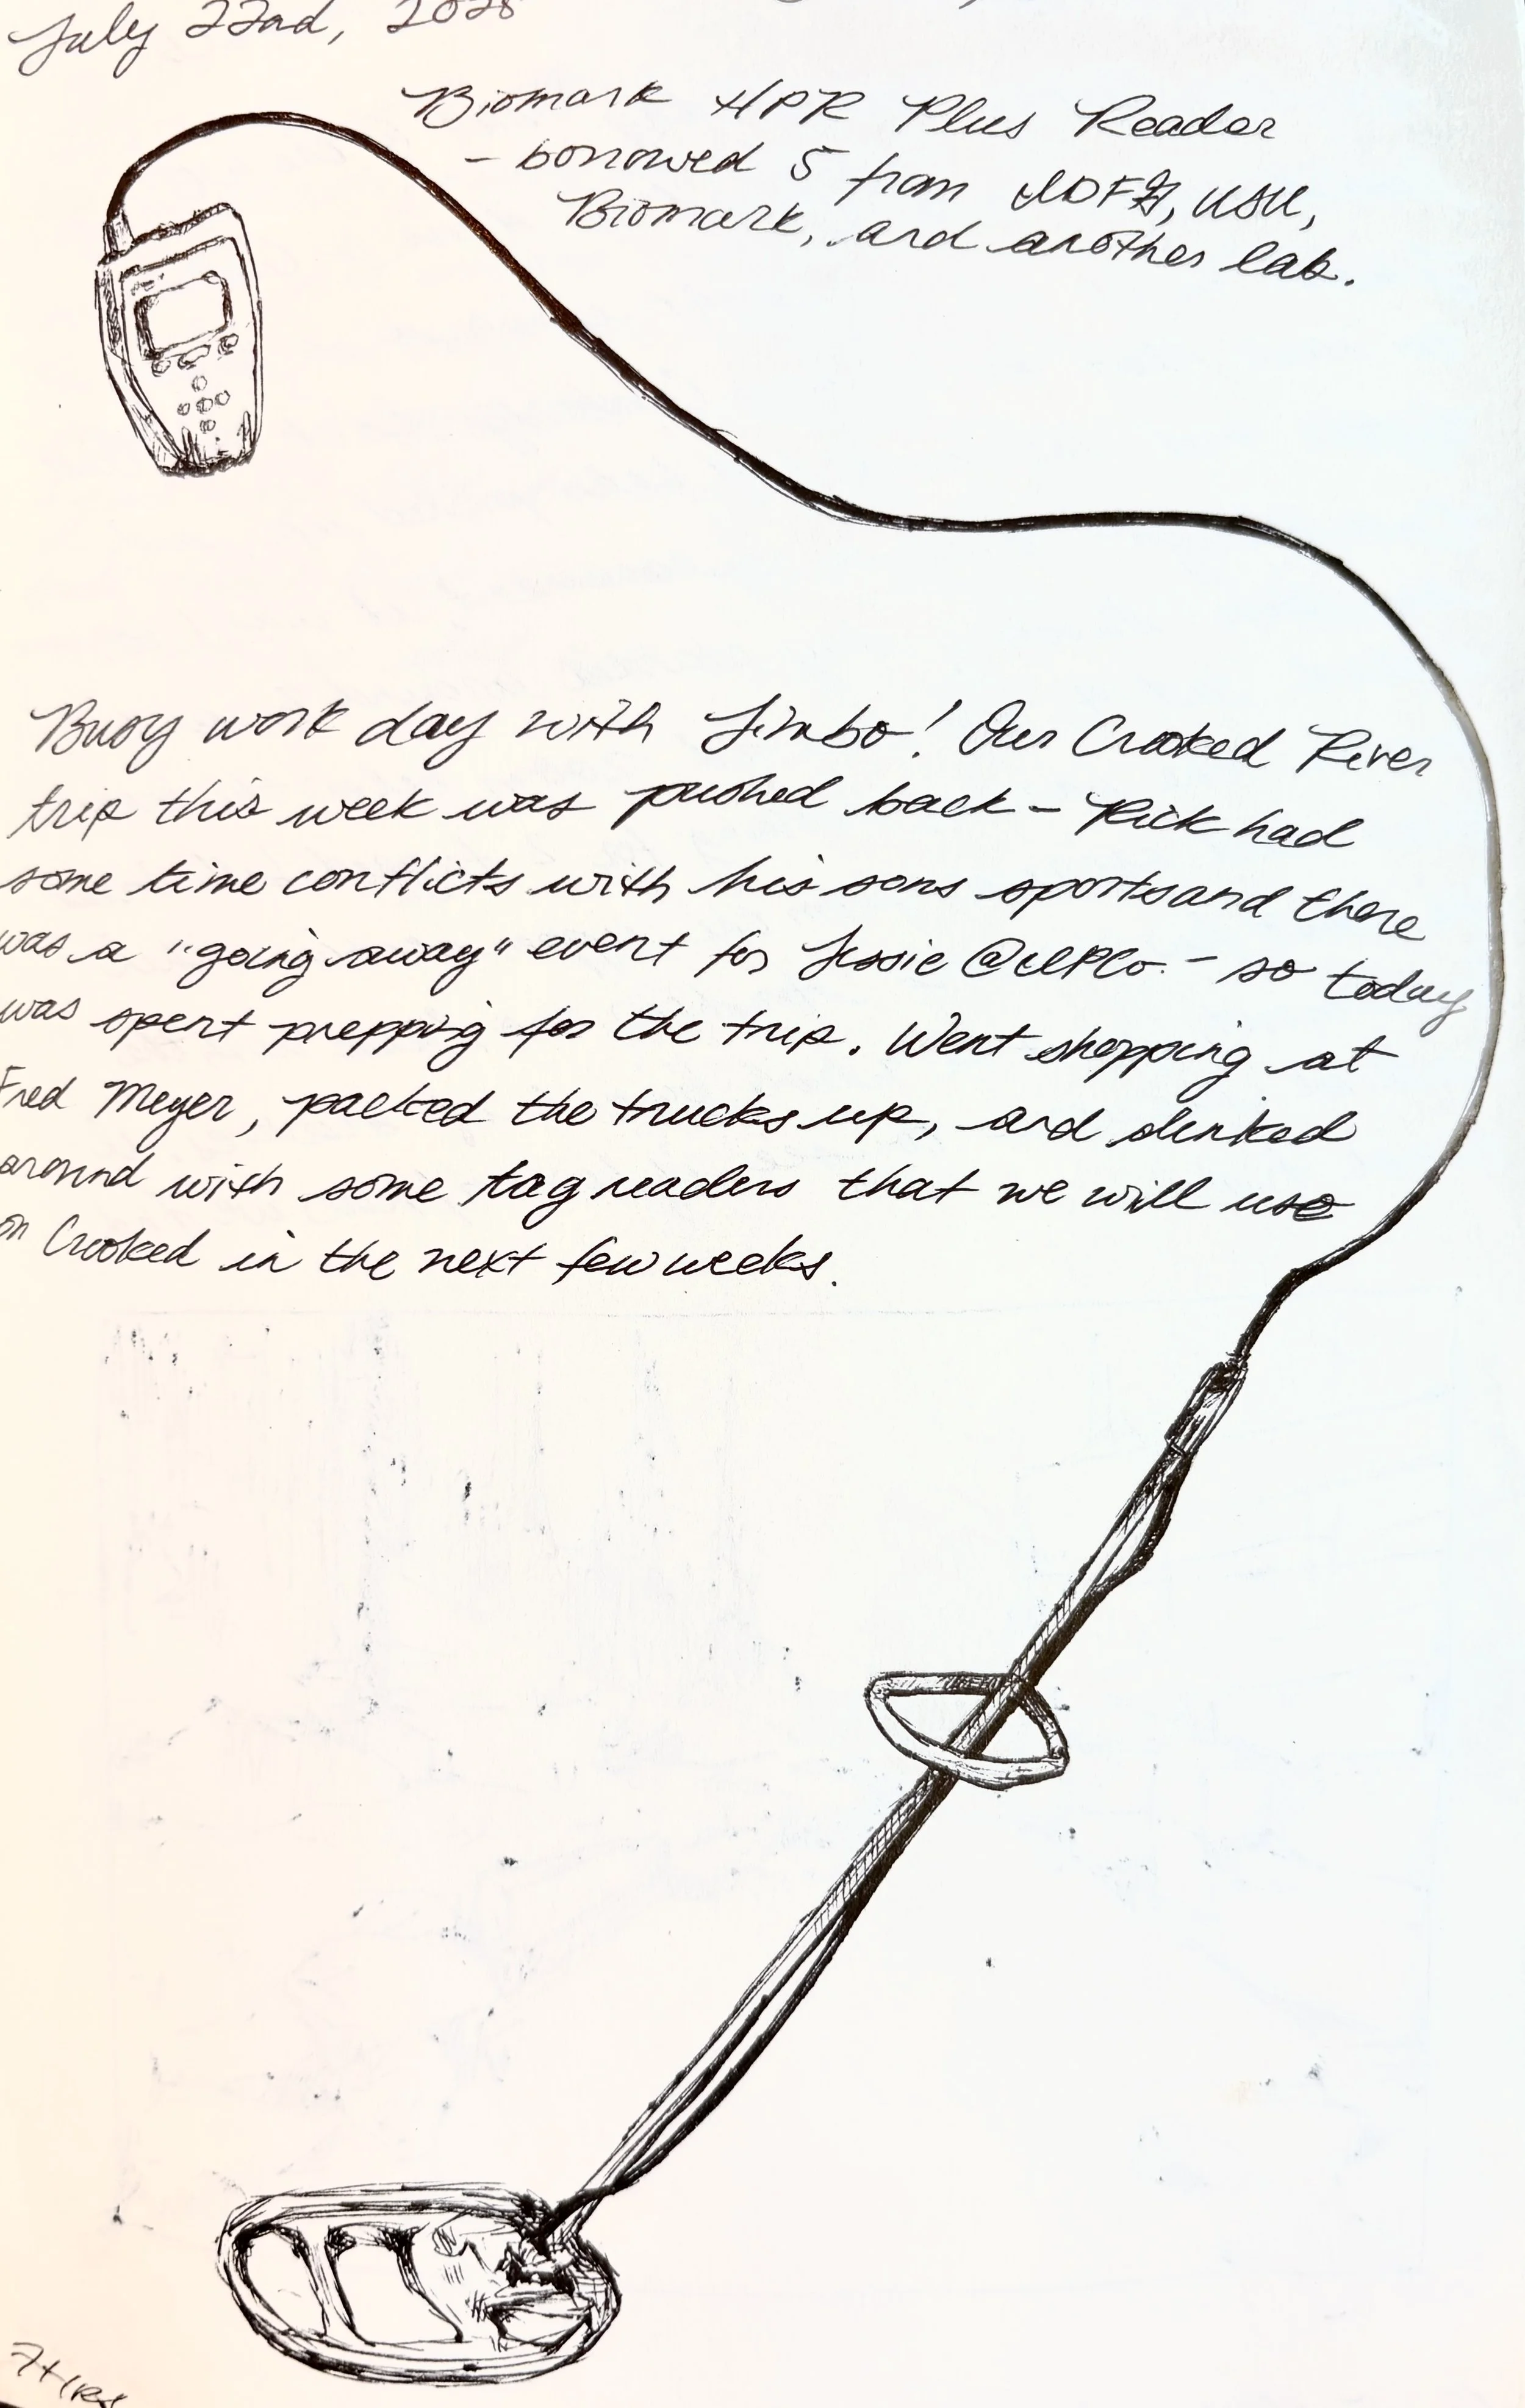 July 22nd, 2025
Biomark HPR Plus Reader
- borrowed 5 from IDFG, USU,
Biomark, and another lab.
Buoy work day with Jimbo! Our Crooked River
trip this week was pushed back - Rick had
some time conflicts with his sons sports and there
was a "going away" event for Jessie @ IPCo. - so today
was spent prepping for the trip. Went shopping at
Fred Meyer, packed the trucks up, and dinked
around with some tag readers that we will use
on Crooked in the next few weeks.
7+ hrs